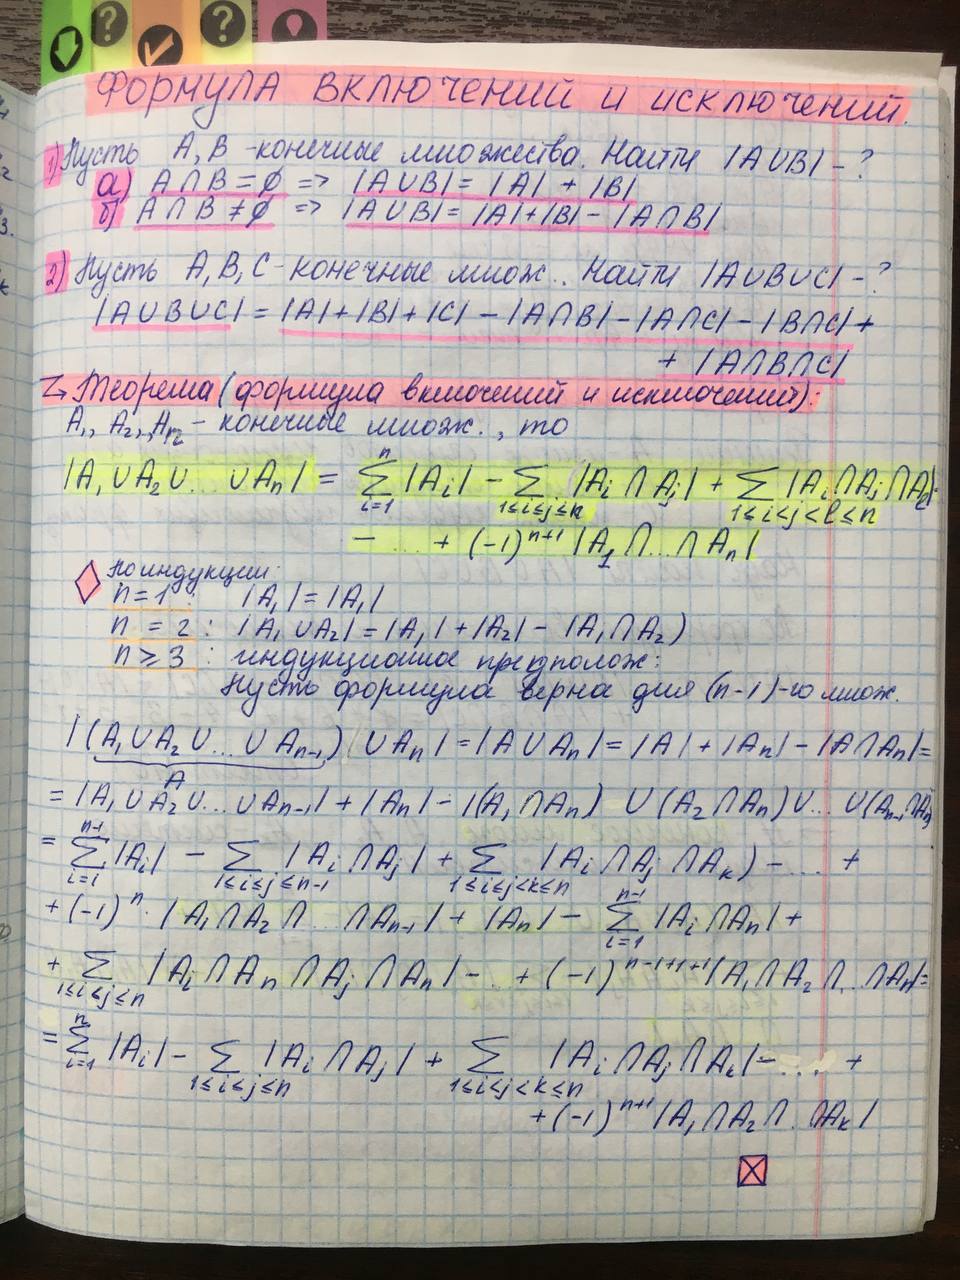 ФОРМУЛА ВКЛЮЧЕНИЙ И ИСКЛЮЧЕНИЙ.
1) Пусть A, B - конечные множества. Найти |A∪B| - ?
а) A∩B = ∅ => |A∪B| = |A| + |B|
б) A∩B ≠ ∅ => |A∪B| = |A|+|B| - |A∩B|
2) Пусть A, B, C - конечные множ.. Найти |A∪B∪C| - ?
|A∪B∪C| = |A|+|B|+|C| - |A∩B| - |A∩C| - |B∩C| +
+ |A∩B∩C|
Теорема (формула включений и исключений):
A₁, A₂,.,Aₙ - конечные множ., то
|A₁∪A₂∪...∪Aₙ| = ∑ⁿᵢ₌₁ |Aᵢ| - ∑_{1≤i≤j≤n} |Aᵢ∩Aⱼ| + ∑_{1≤i<j<l≤n} |Aᵢ∩Aⱼ∩Aₗ| -
- ... + (-1)ⁿ⁺¹ |A₁∩...∩Aₙ|
По индукции:
n = 1 : |A₁| = |A₁|
n = 2 : |A₁∪A₂| = |A₁| + |A₂| - |A₁∩A₂)
n ≥ 3 : индукционное предполож:
Пусть формула верна для (n-1)-го множ.
|(A₁∪A₂∪...∪Aₙ₋₁) ∪Aₙ| = |A∪Aₙ| = |A| + |Aₙ| - |A∩Aₙ| =
A
= |A₁∪A₂∪...∪Aₙ₋₁| + |Aₙ| - |(A₁∩Aₙ) ∪ (A₂∩Aₙ)∪... ∪(Aₙ₋₁∩Aₙ)
= ∑ⁿ⁻¹ᵢ₌₁ |Aᵢ| - ∑_{1≤i≤j≤n-1} |Aᵢ∩Aⱼ| + ∑_{1≤i≤j<k≤n} |Aᵢ∩Aⱼ∩Aₖ) - ... +
+ (-1)ⁿ· |A₁∩A₂∩...∩Aₙ₋₁| + |Aₙ| - ∑ⁿ⁻¹ᵢ₌₁ |Aᵢ∩Aₙ| +
+ ∑_{1≤i≤j≤n} |Aᵢ∩Aₙ∩Aⱼ∩Aₙ| - .. + (-1)ⁿ⁻¹⁺¹⁺¹|A₁∩A₂∩...∩Aₙ| =
= ∑ⁿᵢ₌₁ |Aᵢ| - ∑_{1≤i≤j≤n} |Aᵢ∩Aⱼ| + ∑_{1≤i≤j<k≤n} |Aᵢ∩Aⱼ∩Aₖ| - .... +
+ (-1)ⁿ⁺¹ |A₁∩A₂∩...∩Aₖ|